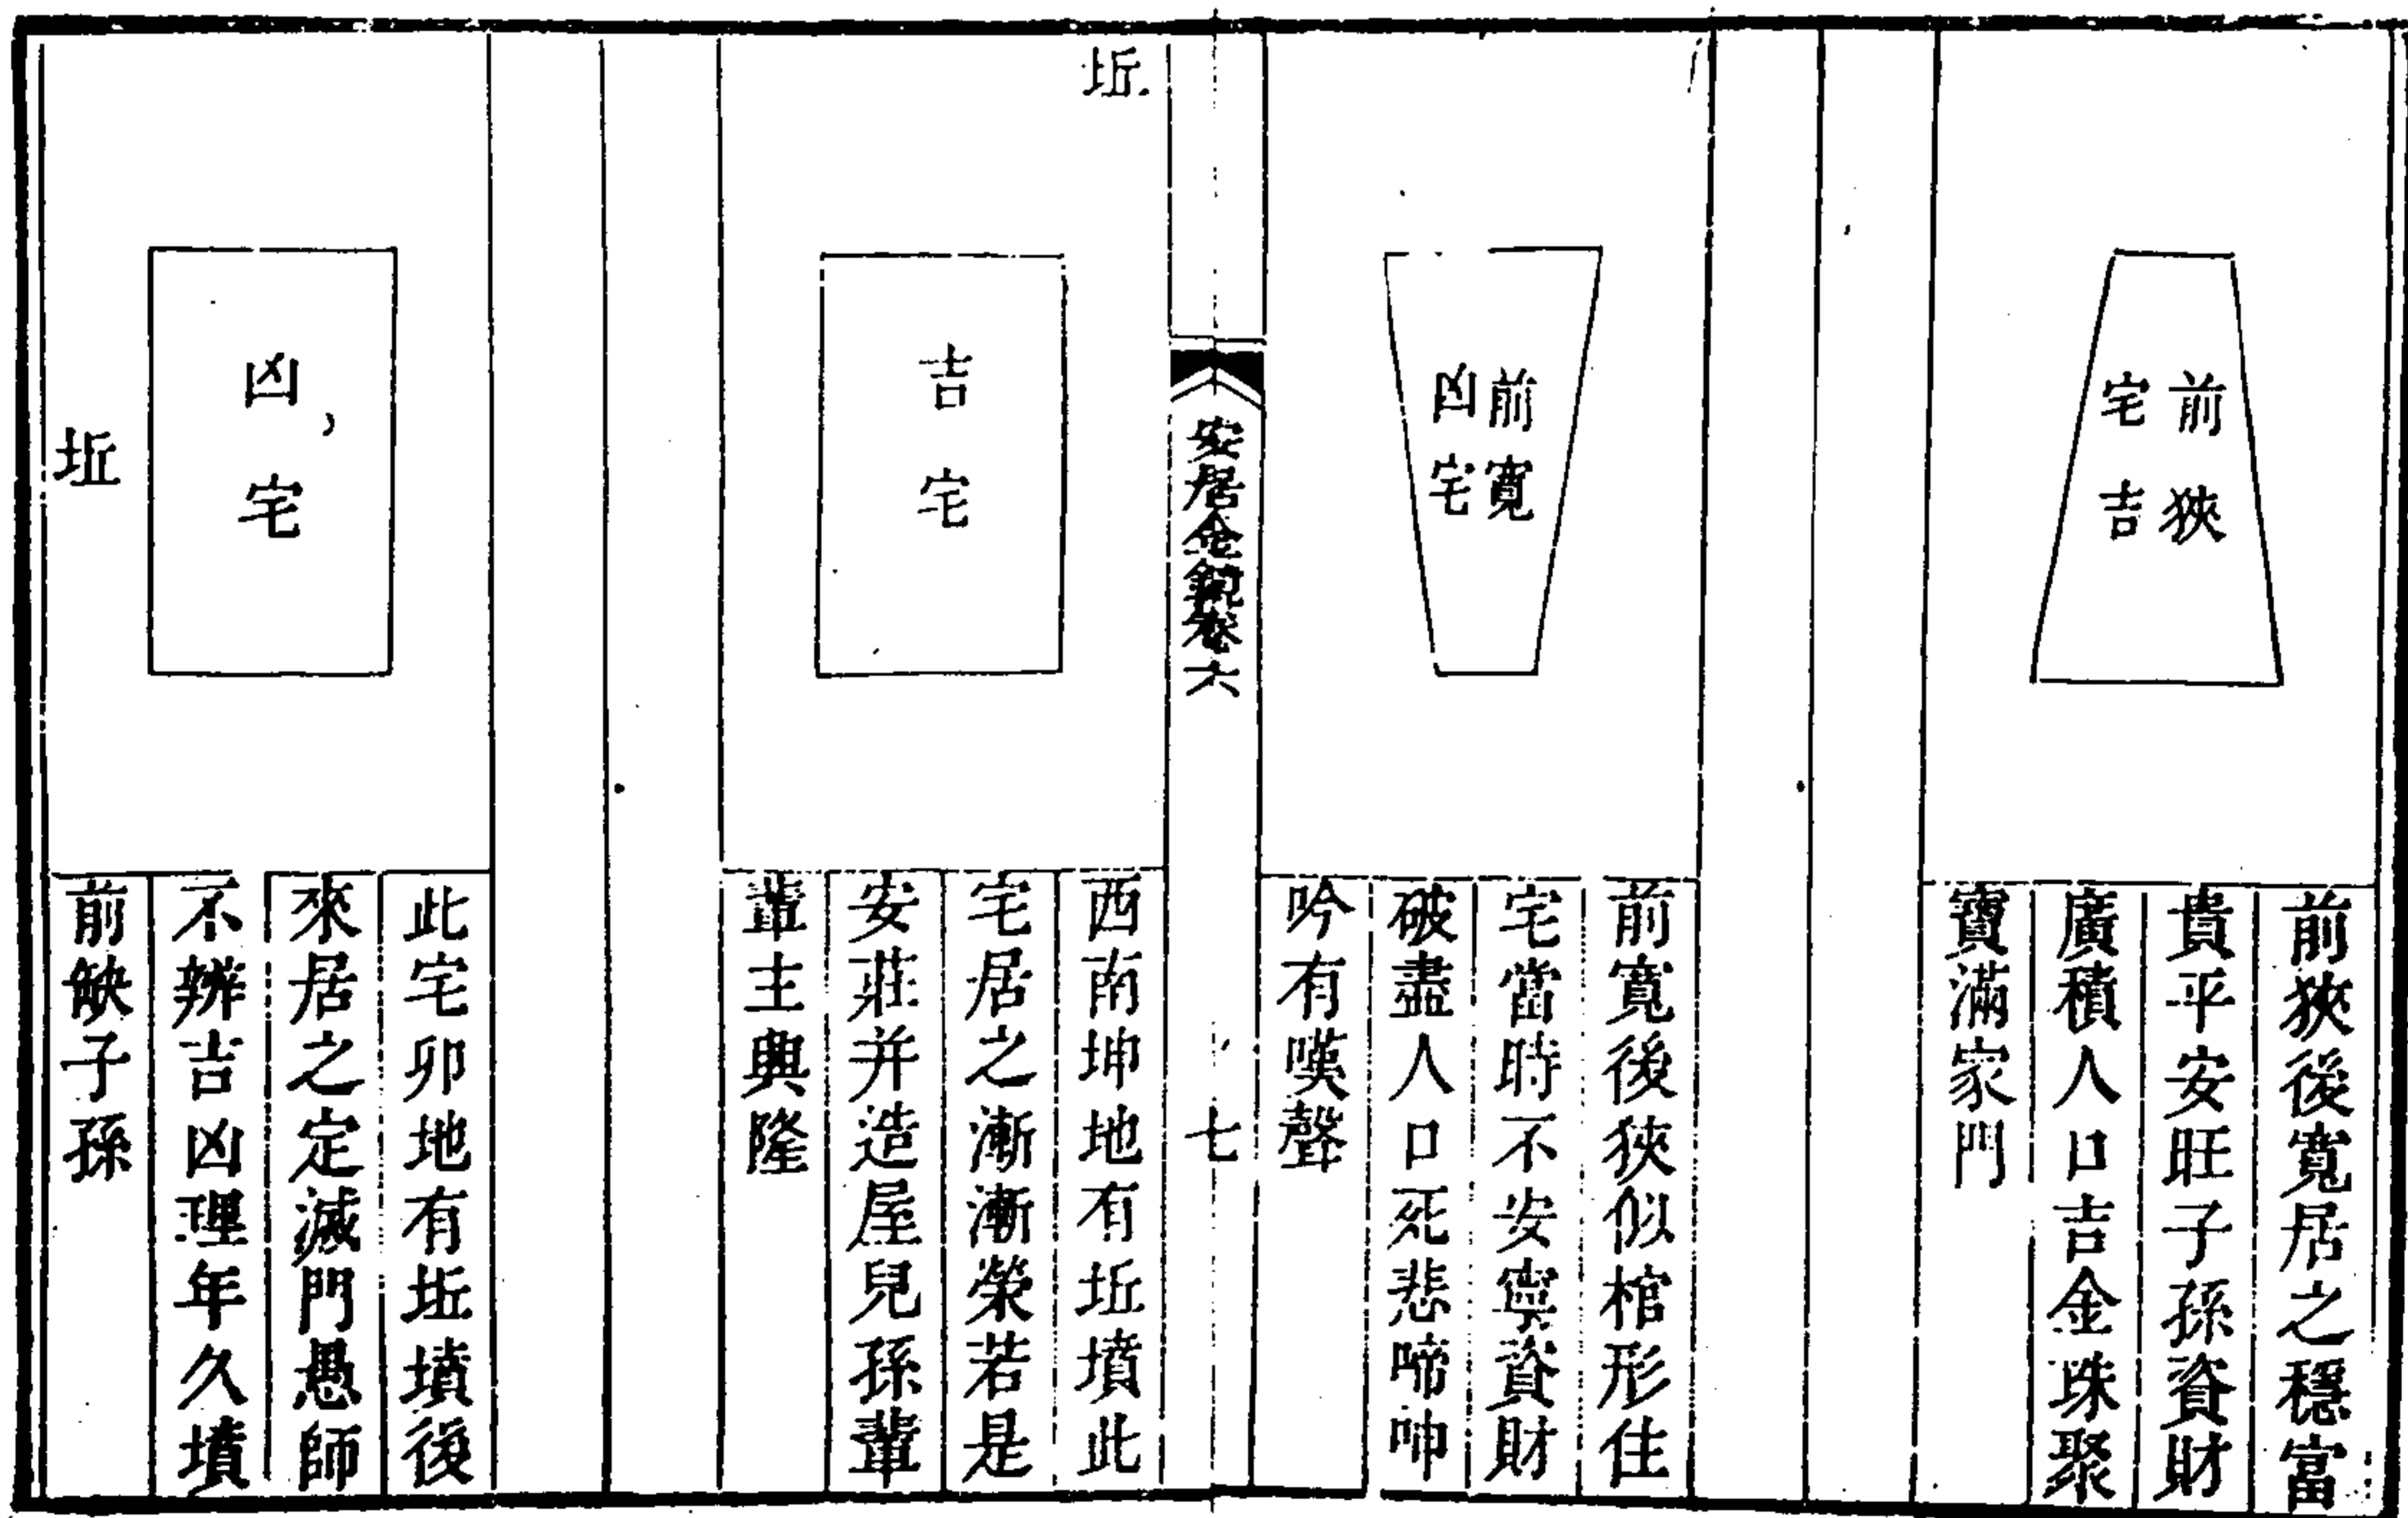 前狹
宅吉
前狹後寬居之穩富
貴平安旺子孫資財
廣積人口吉金珠聚
寶滿家門
前寬
凶宅
前寬後狹似棺形住
宅當時不安寧資財
破盡人口死悲啼呻
吟有嘆聲
安居金鏡卷六
七
坵
吉宅
西南坤地有坵墳此
宅居之漸漸榮若是
安莊并造屋兒孫輩
輩主興隆
凶宅
坵
此宅卯地有坵墳後
來居之定滅門愚師
不辨吉凶理年久墳
前缺子孫